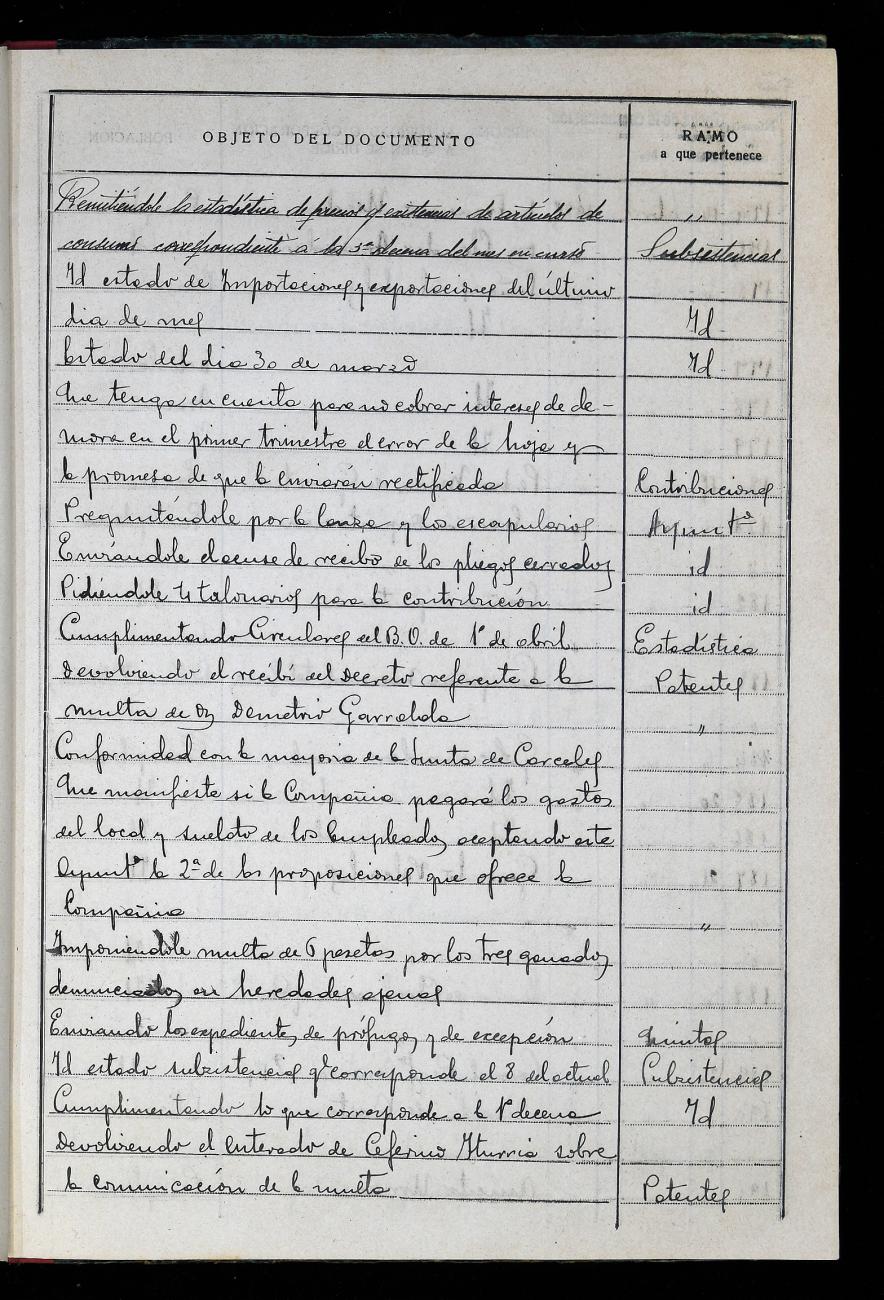 OBJETO DEL DOCUMENTO
RAMO
a que pertenece
Remitiéndole la estadística de precios y existencias de artículos de "
consumo correspondiente á la 3ª decena del mes en curso Subsistencias
Id estado de Importaciones y exportaciones del último
dia de mes Id
Estado del dia 30 de marzo Id
Que tenga en cuenta para no cobrar intereses de de-
mora en el primer trimestre el error de la hoja y
la promesa de que la enviarán rectificada Contribuciones
Preguntándole por la lanza y los escapularios Ayuntº
Enviándole el acuse de recibo de los pliegos cerrados id
Pidiéndole 4 talonarios para la contribución id
Cumplimentando Circulares del B.O. de 1º de abril Estadística
Devolviendo el recibí del Decreto referente a la Patentes
multa de Dn Demetrio Garralda "
Conformidad con la mayoria de la Junta de Carceles
Que manifieste si la Compañia pagará los gastos
del local y sueldo de los Empleados aceptando este
Ayuntº la 2ª de las proposiciones que ofrece la
Compañia "
Imponiendole multa de 6 pesetas por los tres ganados
denunciados en heredades ajenas
Enviando los expedientes de prófugos y de excepción Quintas
Id estado subsistencias qe corresponde al 8 del actual Subsistencias
Cumplimentando lo que corresponde a la 1ª decena Id
Devolviendo el Enterado de Ceferino Iturria sobre
la comunicación de la multa Patentes